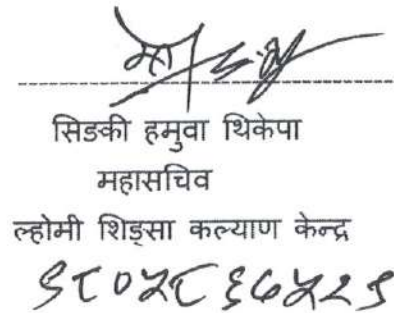 सिङकी हमुवा थिकेपा
महासचिव
ल्होमी शिङ्सा कल्याण केन्द्र
९८०५८६७५२९